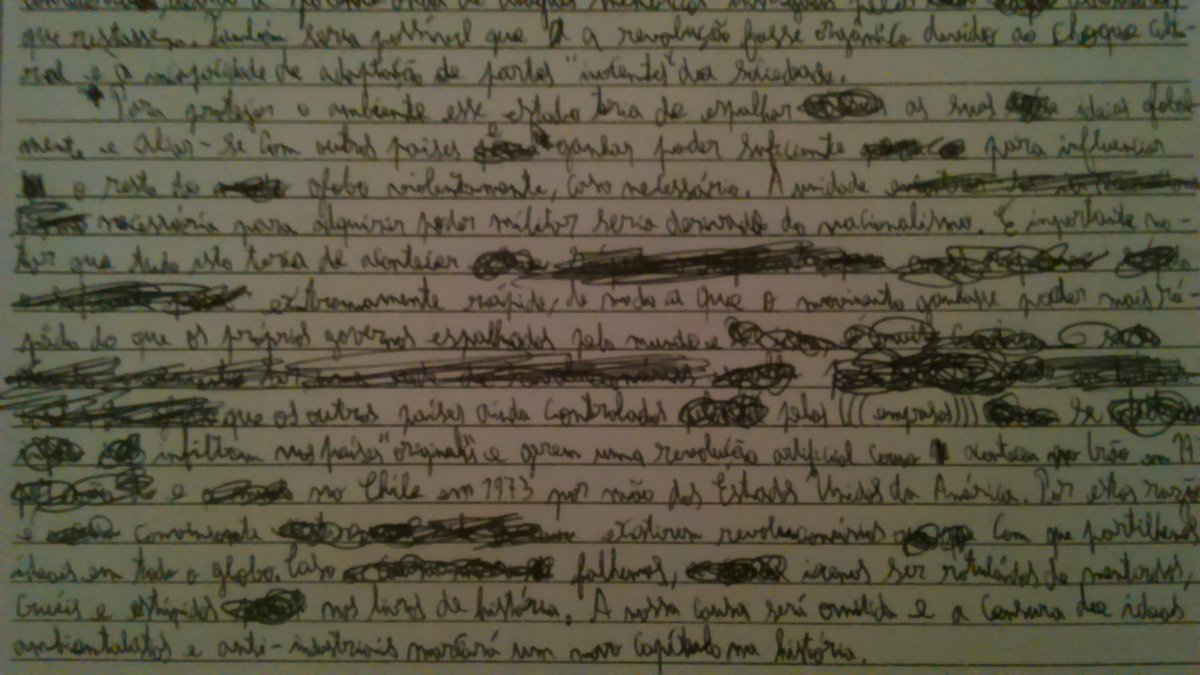 que restassem. Também seria possível que a revolução fosse orgânica devido ao choque cultu-
ral e a incapacidade de adaptação de partes "inocentes" da sociedade.
Para proteger o ambiente esse estado teria de espalhar as suas ideias global
mente e aliar-se com outros países ganhar poder suficiente para influenciar
o resto do globo violentamente, caso necessário. A unidade
necessária para adquirir poder militar seria derivada do nacionalismo. É importante no-
tar que tudo isto teria de acontecer
extremamente rápido, de modo a que o movimento ganhasse poder mais rá-
pido do que os próprios governos espalhados pelo mundo e
que os outros países ainda controlados pelos (((empresas))) se
infiltrem nos países "originais" e gerem uma revolução artificial como no Irão em 19
e no Chile em 1973 por mão dos Estados Unidos da América. Por estas razõ
é conveniente existirem revolucionários com que partilhemos
ideais em todo o globo. Caso falhemos, iremos ser rotulados de mentirosos,
cruéis e estúpidos nos livros de história. A nossa causa será omitida e a censura das ideias
ambientalistas e anti-industriais marcará um novo capítulo na história.